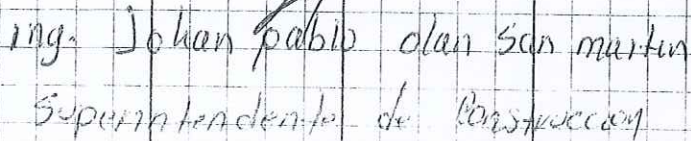 ing. Johan pablo olan san martin
Superintendente de Construccion